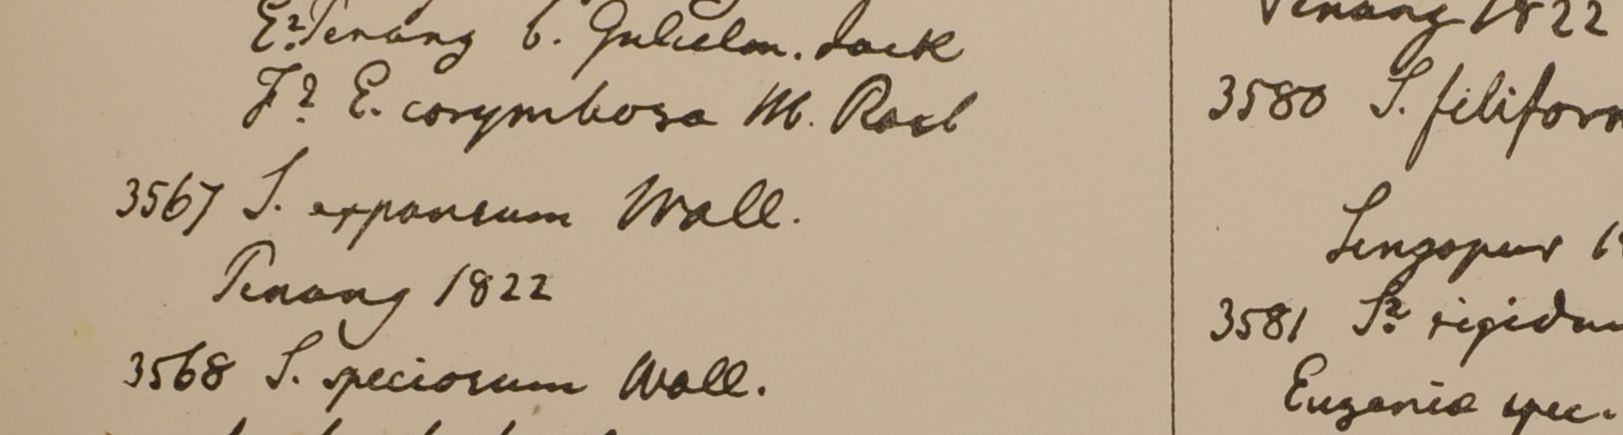 E? Penang b. Gulielm. Jack
F? E. corymbosa Hb. Roxb
3567 S. expansum Wall.
Penang 1822
3568 S. speciosum Wall.
Penang 1822
3580 S. filiform
Singapur
3581 S? rigidu
Eugenia spec.